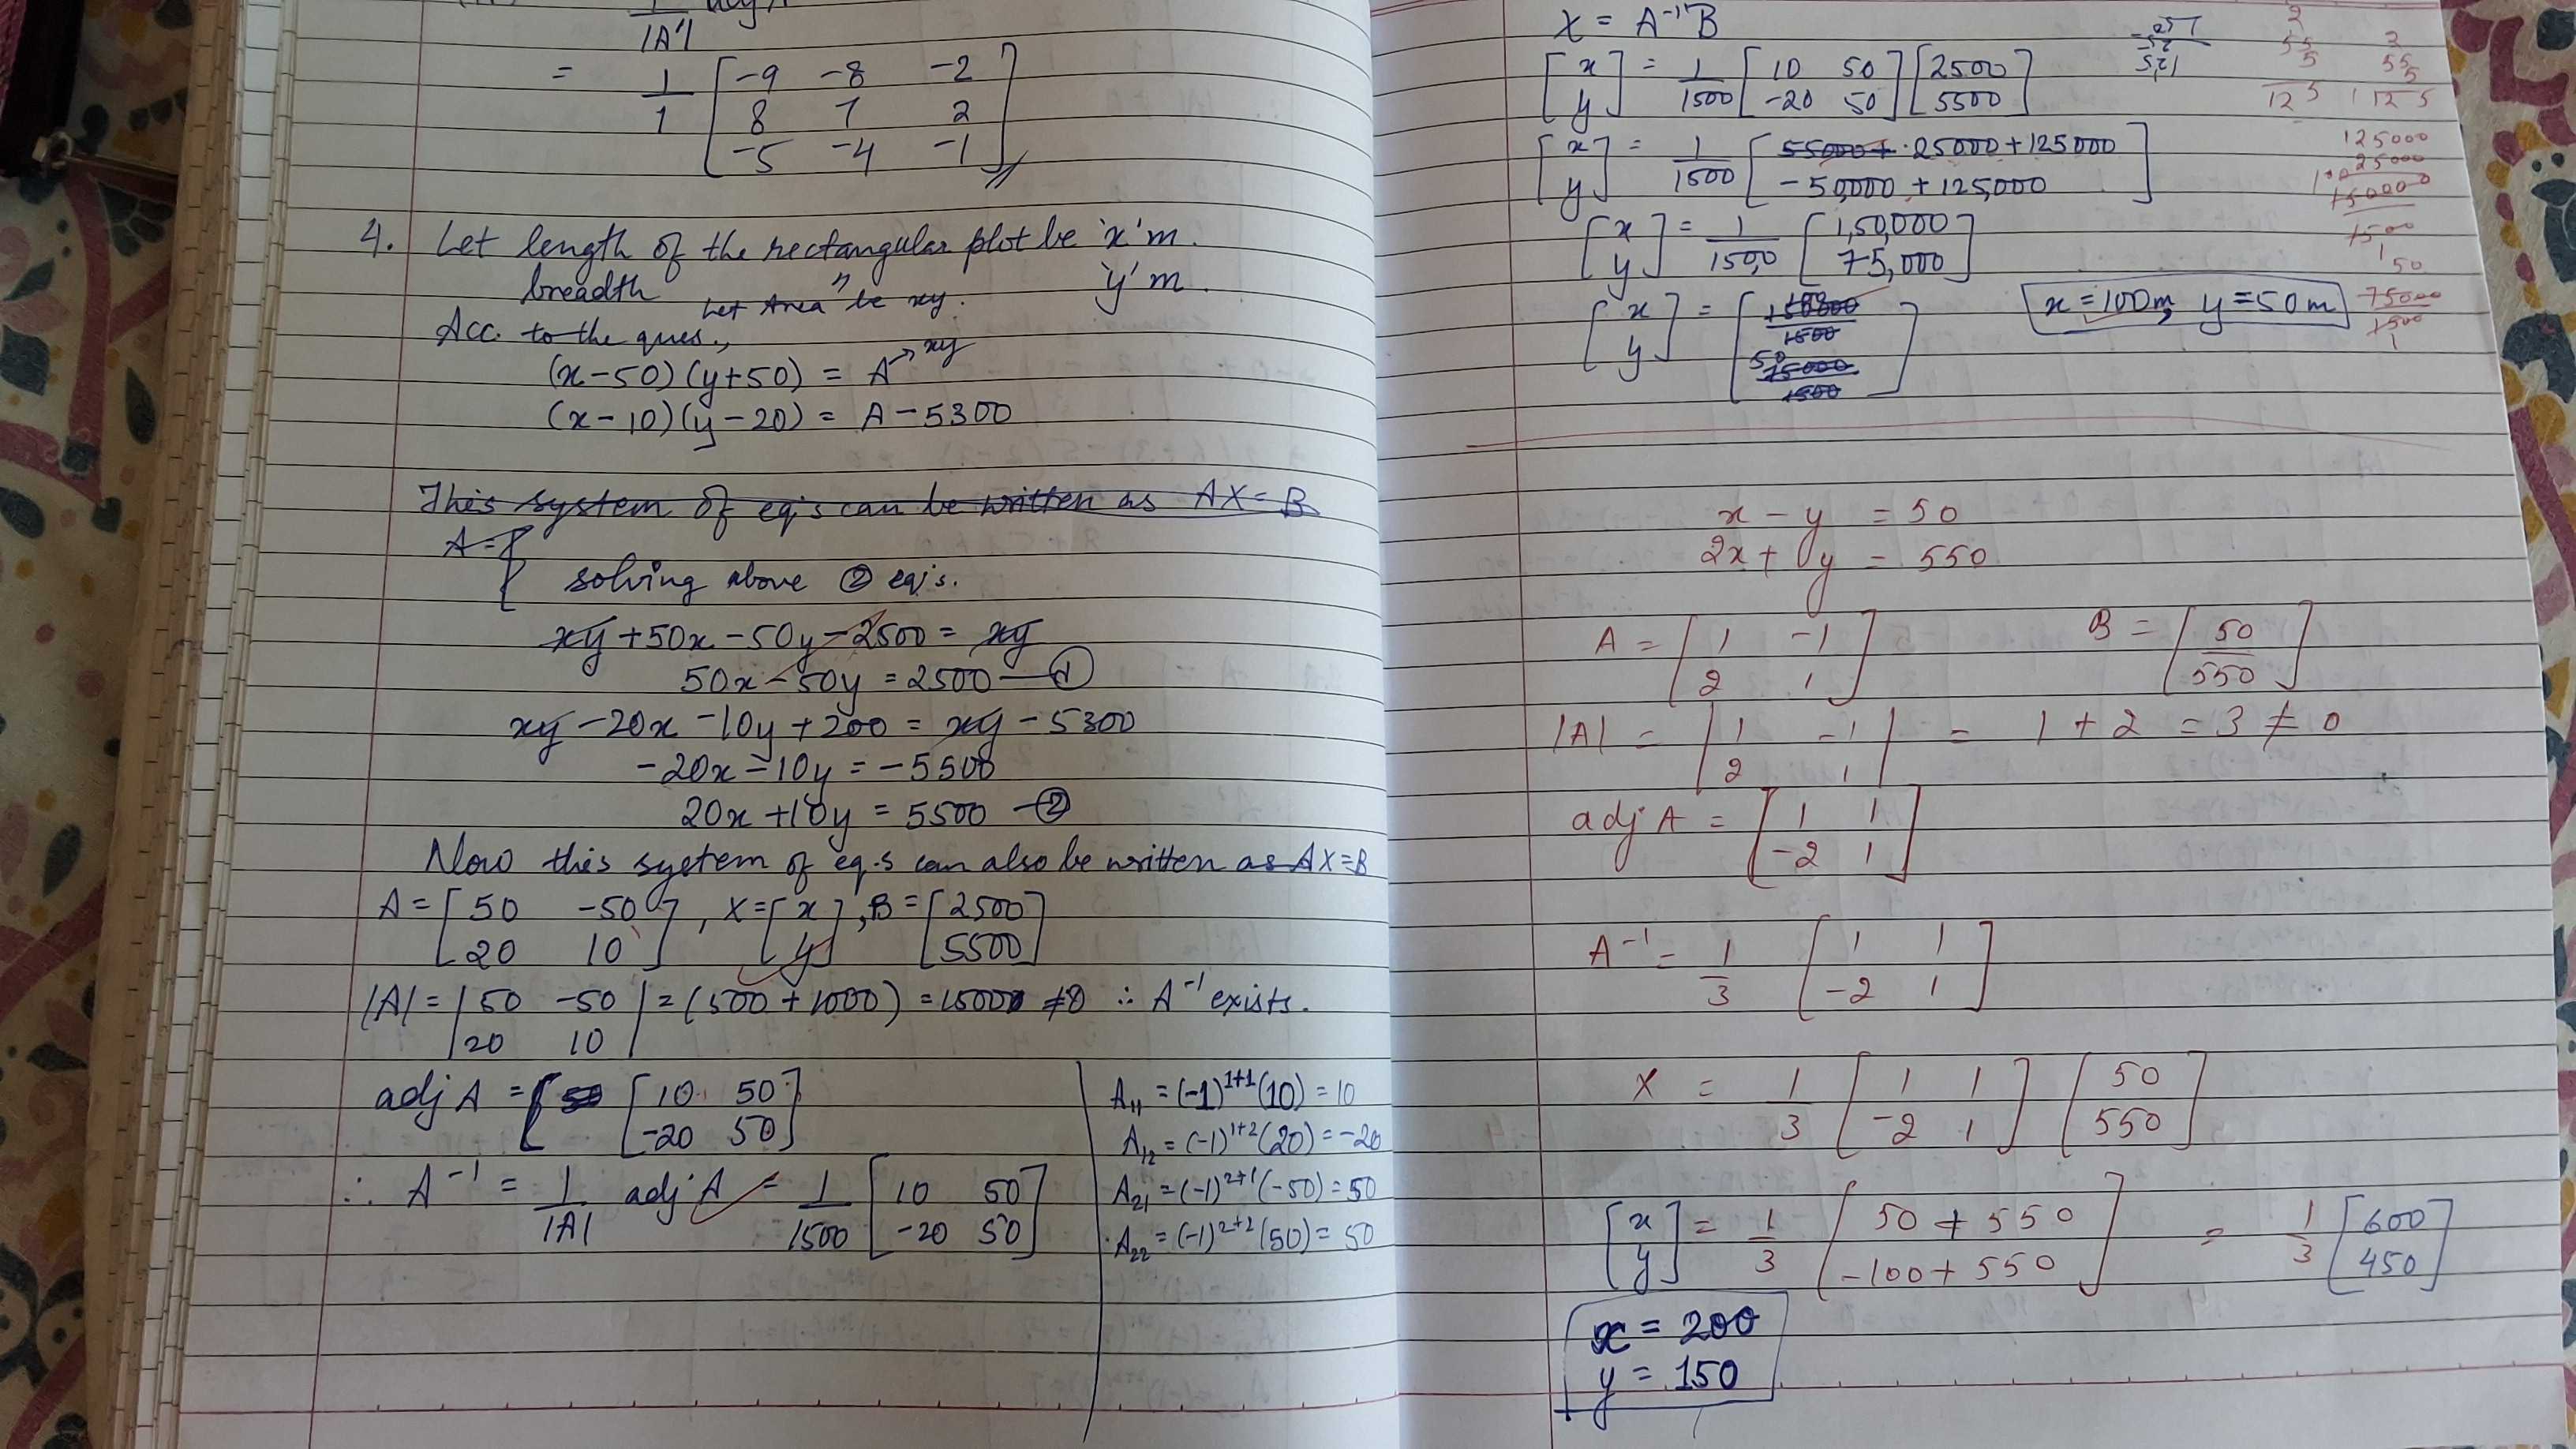 1/|A'|
= 1/1 [-9 -8 -2
8 7 2
-5 -4 -1]
4. Let length of the rectangular plot be 'x' m.
breadth " 'y' m.
Let Area be xy.
Acc. to the ques.,
(x-50)(y+50) = A → xy
(x-10)(y-20) = A-5300
This system of eq's can be written as AX=B
A=[
solving above ② eq's.
xy+50x-50y-2500 = xy
50x-50y = 2500 — ①
xy-20x-10y+200 = xy-5300
-20x-10y = -5500
20x+10y = 5500 — ②
Now this system of eq.s can also be written as AX=B
A = [50 -50
20 10], X = [x
y], B = [2500
5500]
|A| = |50 -50
20 10| = (500+1000) = 1500 ≠0 ∴ A⁻¹ exists.
adj A = [10 50
-20 50]
∴ A⁻¹ = 1/|A| adj A = 1/1500 [10 50
-20 50]
A₁₁ = (-1)¹⁺¹(10) = 10
A₁₂ = (-1)¹⁺²(20) = -20
A₂₁ = (-1)²⁺¹(-50) = 50
A₂₂ = (-1)²⁺²(50) = 50
X = A⁻¹B
[x
y] = 1/1500 [10 50
-20 50] [2500
5500]
[x
y] = 1/1500 [55000+ 25000+125000
-50,000 + 125,000]
[x
y] = 1/1500 [1,50,000
75,000]
[x
y] = [150000/1500
75000/1500]
x = 100m, y = 50m
125000
25000
150000
1500
1
50
75000
1500
1
x - y = 50
2x + y = 550
A = [1 -1
2 1] B = [50
550]
|A| = |1 -1
2 1| = 1+2 = 3 ≠ 0
adj A = [1 1
-2 1]
A⁻¹ = 1/3 [1 1
-2 1]
X = 1/3 [1 1
-2 1] [50
550]
[x
y] = 1/3 [50 + 550
-100 + 550] = 1/3 [600
450]
x = 200
y = 150